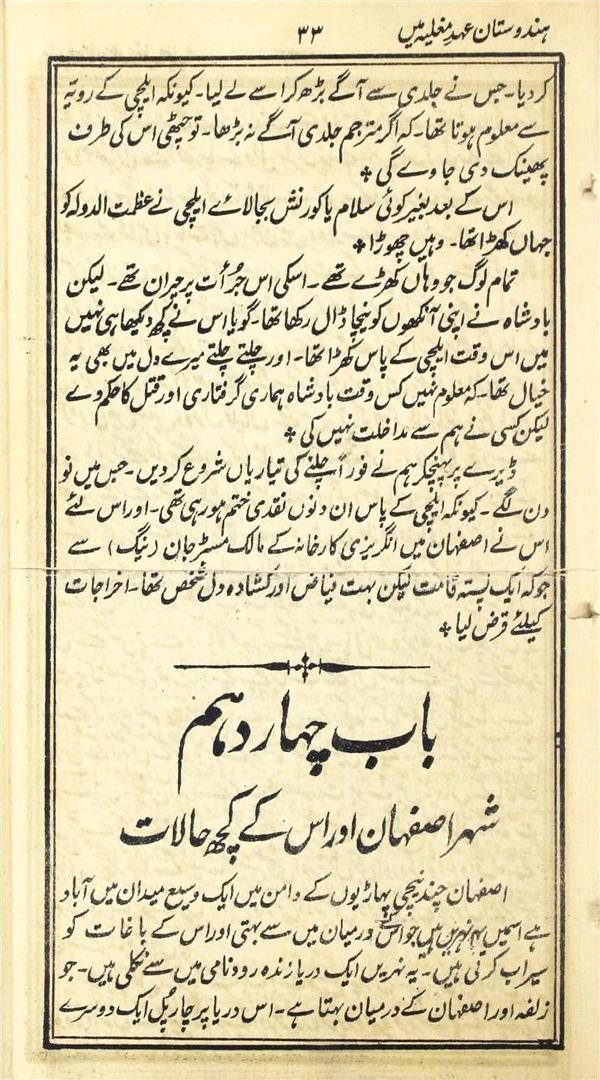 ہندوستان عہدِ مغلیہ میں ۳۳
کر دیا۔ جس نے جلدی سے آگے بڑھ کر اسے لے لیا۔ کیونکہ ایلچی کے رویّہ
سے معلوم ہوتا تھا۔ کہ اگر مترجم جلدی آگے نہ بڑھا۔ تو چٹھی اس کی طرف
پھینک دی جاوے گی ٭
اس کے بعد بغیر کوئی سلام یا کورنش بجا لائے ایلچی نے عظمت الدولہ کو
جہاں کھڑا تھا۔ وہیں چھوڑا ٭
تمام لوگ جو وہاں کھڑے تھے۔ اسکی اس جُرأت پر حیران تھے۔ لیکن
بادشاہ نے اپنی آنکھوں کو نیچا ڈال رکھا تھا۔ گویا اس نے کچھ دیکھا ہی نہیں
میں اس وقت ایلچی کے پاس کھڑا تھا۔ اور چلتے چلتے میرے دل میں بھی یہ
خیال تھا۔ کہ معلوم نہیں کس وقت بادشاہ ہماری گرفتاری اور قتل کا حکم دے
لیکن کسی نے ہم سے مداخلت نہیں کی ٭
ڈیرے پر پہنچکر ہم نے فوراً چلنے کی تیاریاں شروع کر دیں۔ جس میں نو
دن لگے۔ کیونکہ ایلچی کے پاس ان دنوں نقدی ختم ہو رہی تھی۔ اور اس لئے
اس نے اصفہان میں انگریزی کارخانہ کے مالک مسٹر جان (ینگ) سے
جو کہ ایک پستہ قامت لیکن بہت فیاض اور کشادہ دل شخص تھا۔ اخراجات
کیلئے قرض لیا ٭
باب چہاردہم
شہر اصفہان اور اس کے کچھ حالات
اصفہان چند نیچی پہاڑیوں کے دامن میں ایک وسیع میدان میں آباد
ہے اسمیں نہریں ہیں جو اس کے درمیان میں سے بہتی اور اس کے باغات کو
سیراب کرتی ہیں۔ یہ نہریں ایک دریا زندہ رود نامی میں سے نکلی ہیں۔ جو
زلفہ اور اصفہان کے درمیان بہتا ہے۔ اس دریا پر چار پُل ایک دوسرے